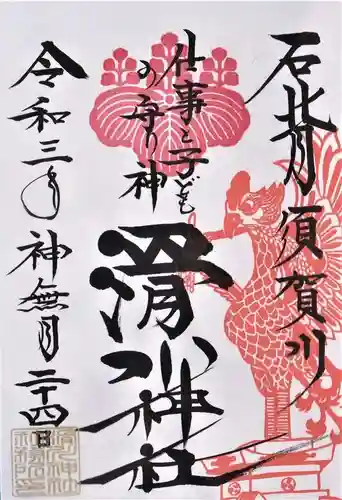 石背 須賀川
仕事と子ども
の守り神
滑川神社
令和三年 神無月二十四日